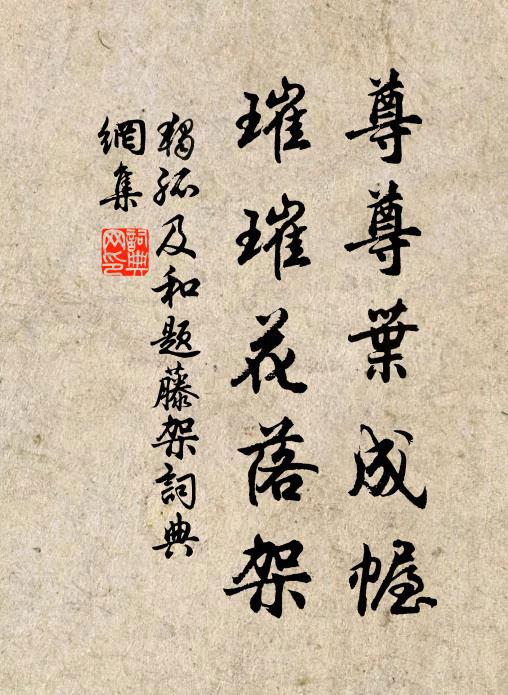 尊尊葉成幄
璀璀花落架
獨孤及和題藤架詞典
網集
詞典
网印